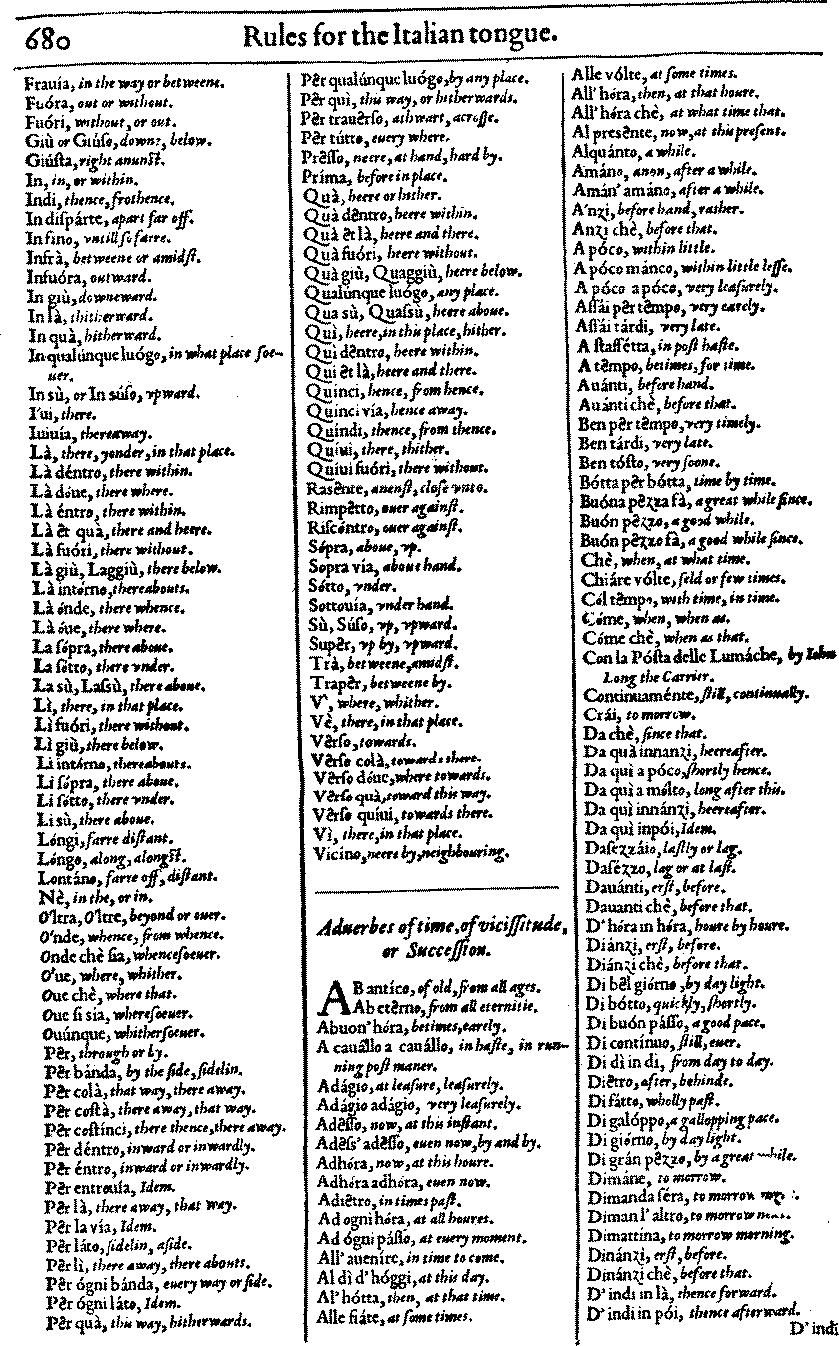 680
Rules for the Italian tongue.
Frauía, in the way or betweene.
Fuóra, out or without.
Fuóri, without, or out.
Giù or Giúſo, downe, below.
Giúſta, right anunſt.
In, in, or within.
Indi, thence, frothence.
In diſpárte, apart far off.
In fino, vntill ſo farre.
Infrà, betweene or amidſt.
Infuóra, outward.
In giù, downeward.
In là, thitherward.
In quà, hitherward.
In qualúnque luógo, in what place ſoe-
uer.
In sù, or In súſo, vpward.
I'ui, there.
Iuiuía, thereaway.
Là, there, yonder, in that place.
Là déntro, there within.
Là dóue, there where.
Là éntro, there within.
Là êt quà, there and heere.
Là fuóri, there without.
Là giù, Laggiù, there below.
Là intórno, thereabouts.
Là ónde, there whence.
Là óue, there where.
La ſópra, there aboue.
La ſótto, there vnder.
La sù, Laſsù, there aboue.
Lì, there, in that place.
Lì fuóri, there without.
Lì giù, there below.
Li intórno, thereabouts.
Li ſópra, there aboue.
Li ſótto, there vnder.
Li sù, there aboue.
Lóngi, farre diſtant.
Lóngo, along, alongſt.
Lontáno, farre off, diſtant.
Nè, in the, or in.
O'ltra, O'ltre, beyond or ouer.
O'nde, whence, from whence.
Onde chè ſia, whenceſoeuer.
O'ue, where, whither.
Oue chè, where that.
Oue ſi sia, whereſoeuer.
Ouúnque, whitherſoeuer.
Pêr, through or by.
Pêr bánda, by the ſide, ſidelin.
Pêr colà, that way, there away.
Pêr coſtà, there away, that way.
Pêr coſtínci, there thence, there away.
Pêr déntro, inward or inwardly.
Pêr éntro, inward or inwardly.
Pêr entrouía, Idem.
Pêr là, there away, that way.
Pêr la vía, Idem.
Pêr láto, ſidelin, aſide.
Pêr lì, there away, there abouts.
Pêr ógni bánda, euery way or ſide.
Pêr ógni láto, Idem.
Pêr quà, this way, hitherwards.
Pêr qualúnque luógo, by any place.
Pêr quì, this way, or hitherwards.
Pêr trauêrſo, athwart, acroſſe.
Pêr tútto, euery where.
Prêſſo, neere, at hand, hard by.
Príma, before in place.
Quà, heere or hither.
Quà dêntro, heere within.
Quà êt là, heere and there.
Quà fuóri, heere without.
Quà giù, Quaggiù, heere below.
Qualúnque luógo, any place.
Qua sù, Quaſsù, heere aboue.
Quì, heere, in this place, hither.
Quì dêntro, heere within.
Qui êt là, heere and there.
Quinci, hence, from hence.
Quinci vía, hence away.
Quindi, thence, from thence.
Quíui, there, thither.
Quíui fuóri, there without.
Rasênte, anenſt, cloſe vnto.
Rimpêtto, ouer againſt.
Riſcóntro, ouer againſt.
Sópra, aboue, vp.
Sopra vía, aboue hand.
Sótto, vnder.
Sottouía, vnder hand.
Sù, Súſo, vp, vpward.
Supêr, vp by, vpward.
Trà, betweene, amidſt.
Trapêr, betweene by.
V', where, whither.
Vè, there, in that place.
Vêrſo, towards.
Vêrſo colà, towards there.
Vêrſo dóue, where towards.
Vêrſo quà, toward this way.
Vêrſo quíuì, towards there.
Vì, there, in that place.
Vicíno, neere by, neighbouring.
Aduerbes of time, of viciſſitude,
or Succeſſion.
AB antíco, of old, from all ages.
Ab etêrno, from all eternitie.
Abuon' hóra, betimes, earely.
A cauállo a cauállo, in haſte, in run-
ning poſt maner.
Adágio, at leaſure, leaſurely.
Adágio adágio, very leaſurely.
Adêſſo, now, at this inſtant.
Adêſs' adêſſo, euen now, by and by.
Adhóra, now, at this houre.
Adhóra adhóra, euen now.
Adiêtro, in times paſt.
Ad ogni hóra, at all houres.
Ad ógni páſſo, at euery moment.
All' auenire, in time to come.
Al dì d' hóggi, at this day.
Al' hótta, then, at that time.
Alle fiáte, at ſome times.
Alle vólte, at ſome times.
All' hóra, then, at that houre.
All' hóra chè, at what time that.
Al presênte, now, at this preſent.
Alquánto, a while.
Amáno, anon, after a while.
Amán' amáno, after a while.
A'nzi, before hand, rather.
Anzi chè, before that.
A póco, within little.
A póco mánco, within little leſſe.
A póco a póco, very leaſurely.
Aſſái pêr têmpo, very earely.
Aſſái tárdi, very late.
A ſtaffétta, in poſt haſte.
A têmpo, betimes, for time.
Auánti, before hand.
Auánti chè, before that.
Ben pêr têmpo, very timely.
Ben tárdi, very late.
Ben tóſto, very ſoone.
Bótta pêr bótta, time by time.
Buóna pêzza fà, a great while ſince.
Buón pêzzo, a good while.
Buón pêzzo fà, a good while ſince.
Chè, when, at what time.
Chiáre vólte, ſeld or few times.
Cól têmpo, with time, in time.
Cóme, when, when as.
Cóme chè, when as that.
Con la Póſta delle Lumáche, by Iohn
Long the Carrier.
Continuaménte, ſtill, continually.
Crái, to morrow.
Da chè, ſince that.
Da quà innanzi, heereafter.
Da quì a póco, ſhortly hence.
Da quì a mólto, long after this.
Da quì innánzi, heereafter.
Da quì inpói, Idem.
Daſezzáio, laſtly or lag.
Daſézzo, lag or at laſt.
Dauánti, erſt, before.
Dauanti chè, before that.
D' hóra in hóra, houre by houre.
Diánzi, erſt, before.
Diánzi chè, before that.
Di bêl giórno, by day light.
Di bótto, quickly, ſhortly.
Di buón páſſo, a good pace.
Di contínuo, ſtill, euer.
Di dì in di, from day to day.
Diêtro, after, behinde.
Di fátto, wholly paſt.
Di galóppo, a gallopping pace.
Di giórno, by day light.
Di grán pêzzo, by a great while.
Dimáne, to morrow.
Dimanda ſéra, to morrow
Diman l' altro, to morrow
Dimattína, to morrow morning.
Dinánzi, erſt, before.
Dinánzi chè, before that.
D' indi in là, thence forward.
D' indi in pói, thence afterward.
D' indi